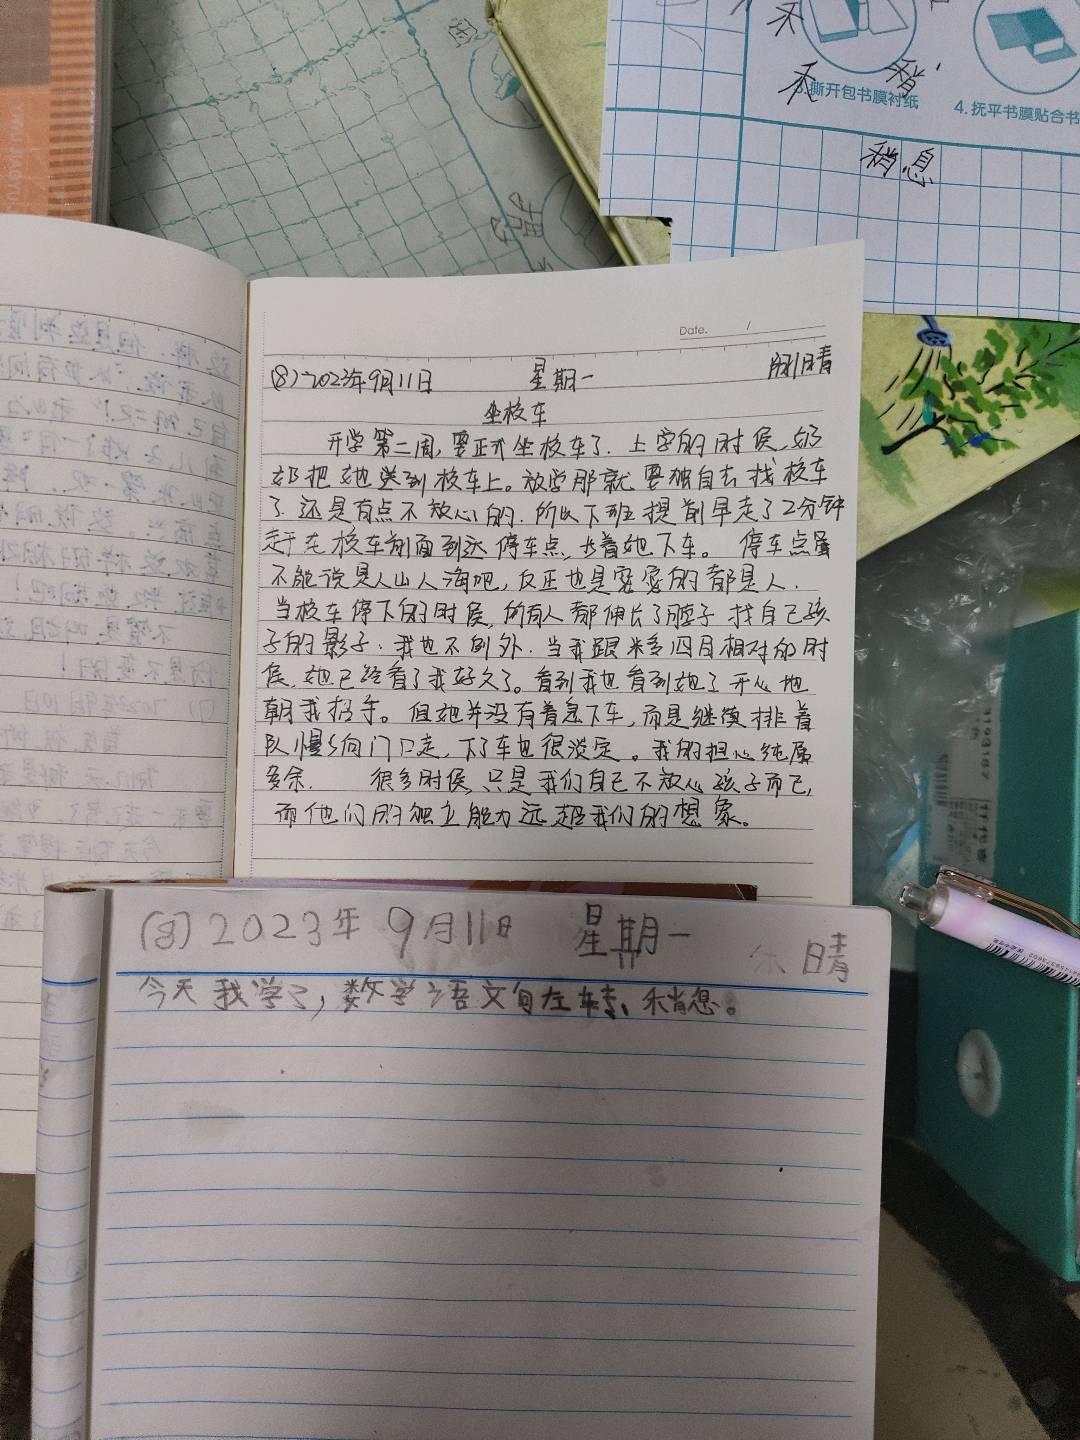 禾
稍
禾
撕开包书膜衬纸
4. 抚平书膜贴合书
稍息
Date. /
(8) 2023年9月11日 星期一 晴
坐校车
开学第二周，要正式坐校车了. 上学的时候，奶
奶把她送到校车上。放学那就要独自去找校车
了. 还是有点不放心的. 所以下班提前早走了2分钟
赶在校车前面到达停车点, 等着她下车。 停车点虽
不能说是人山人海吧, 反正也是密密的都是人.
当校车停下的时候, 所有人都伸长了脖子找自己孩
子的影子. 我也不例外. 当我跟米多四目相对的时
候. 她已经看了我好久了。看到我也看到她了开心地
朝我招手。但她并没有着急下车, 而是继续排着
队慢慢向门口走, 下了车也很淡定。我的担心纯属
多余. 很多时候, 只是我们自己不放心孩子而已,
而他们的独立能力远超我们的想象。
(8) 2023年 9月11日 星期一 晴
今天我学了, 数学语文向左转、禾肖息。